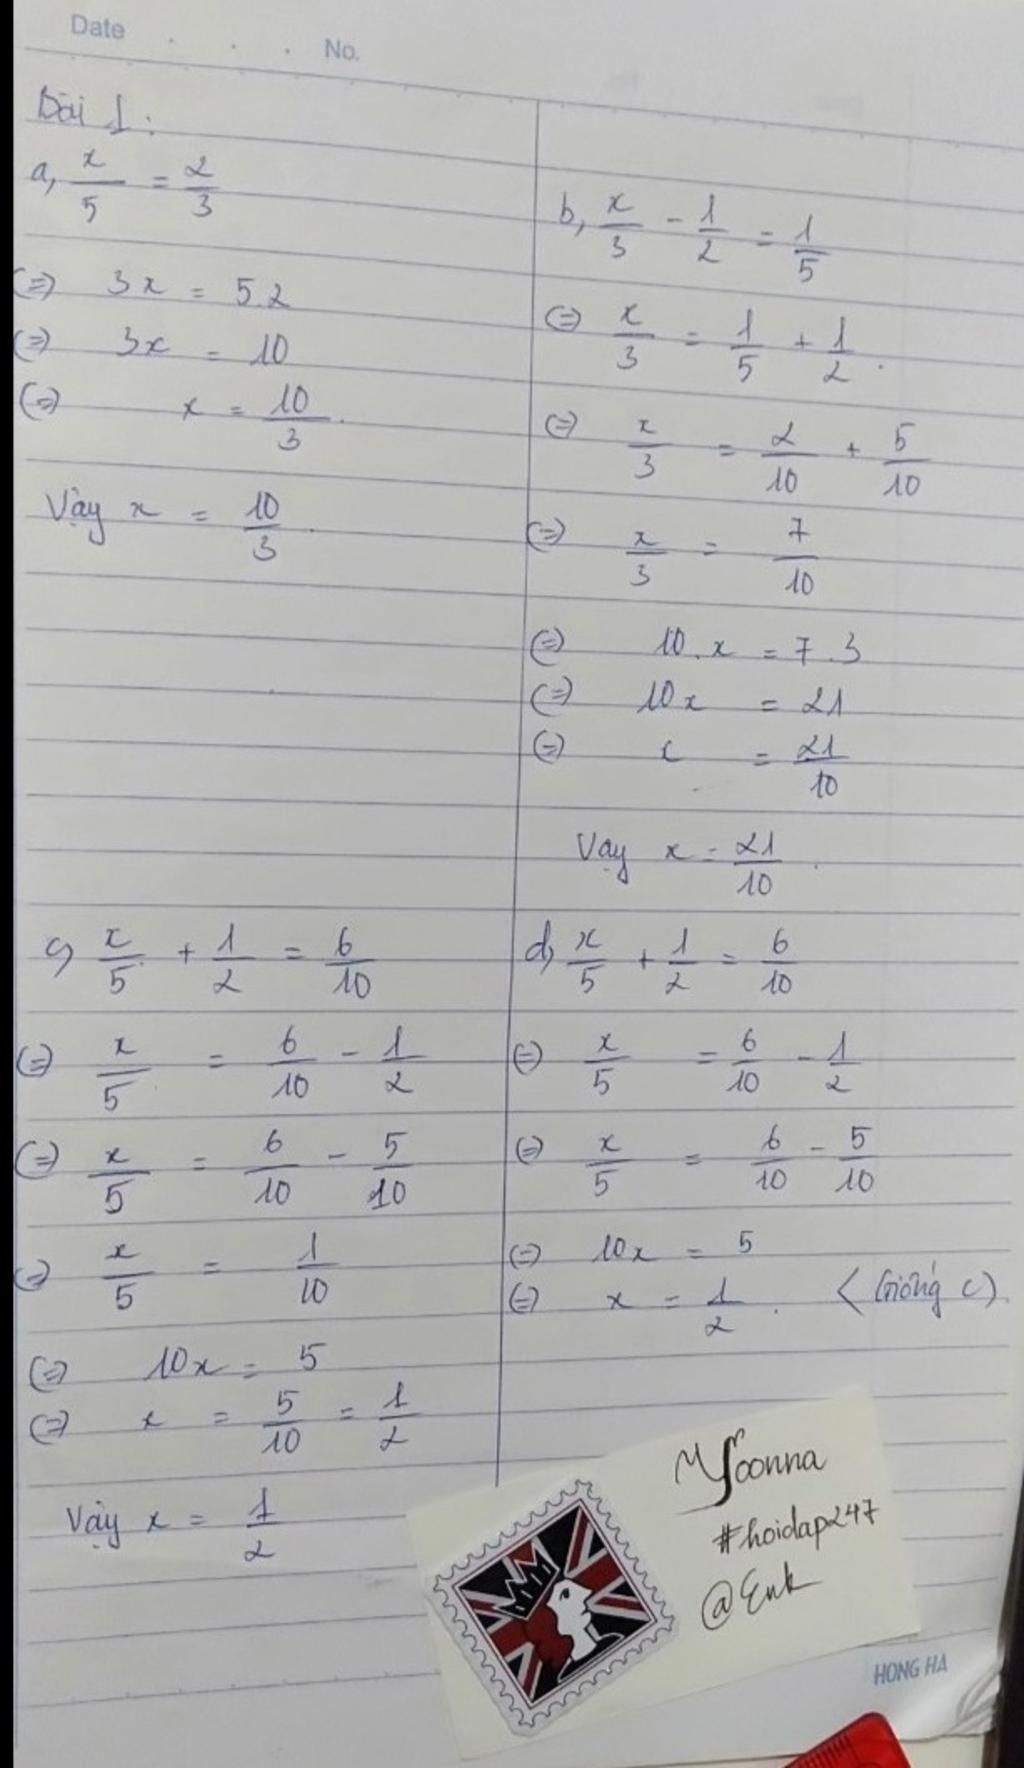 Date . . . No.
Bài 1:
a, x/5 = 2/3
(=) 3x = 5.2
(=) 3x = 10
(=) x = 10/3.
Vậy x = 10/3.
b, x/3 - 1/2 = 1/5
(=) x/3 = 1/5 + 1/2.
(=) x/3 = 2/10 + 5/10
(=) x/3 = 7/10
(=) 10.x = 7.3
(=) 10x = 21
(=) x = 21/10
Vậy x = 21/10.
c, x/5 + 1/2 = 6/10
(=) x/5 = 6/10 - 1/2
(=) x/5 = 6/10 - 5/10
(=) x/5 = 1/10
(=) 10x = 5
(=) x = 5/10 = 1/2
Vậy x = 1/2
d, x/5 + 1/2 = 6/10
(=) x/5 = 6/10 - 1/2
(=) x/5 = 6/10 - 5/10
(=) 10x = 5
(=) x = 1/2. < Giống c).
Yoonna
#hoidap247
@Enk
HONG HA